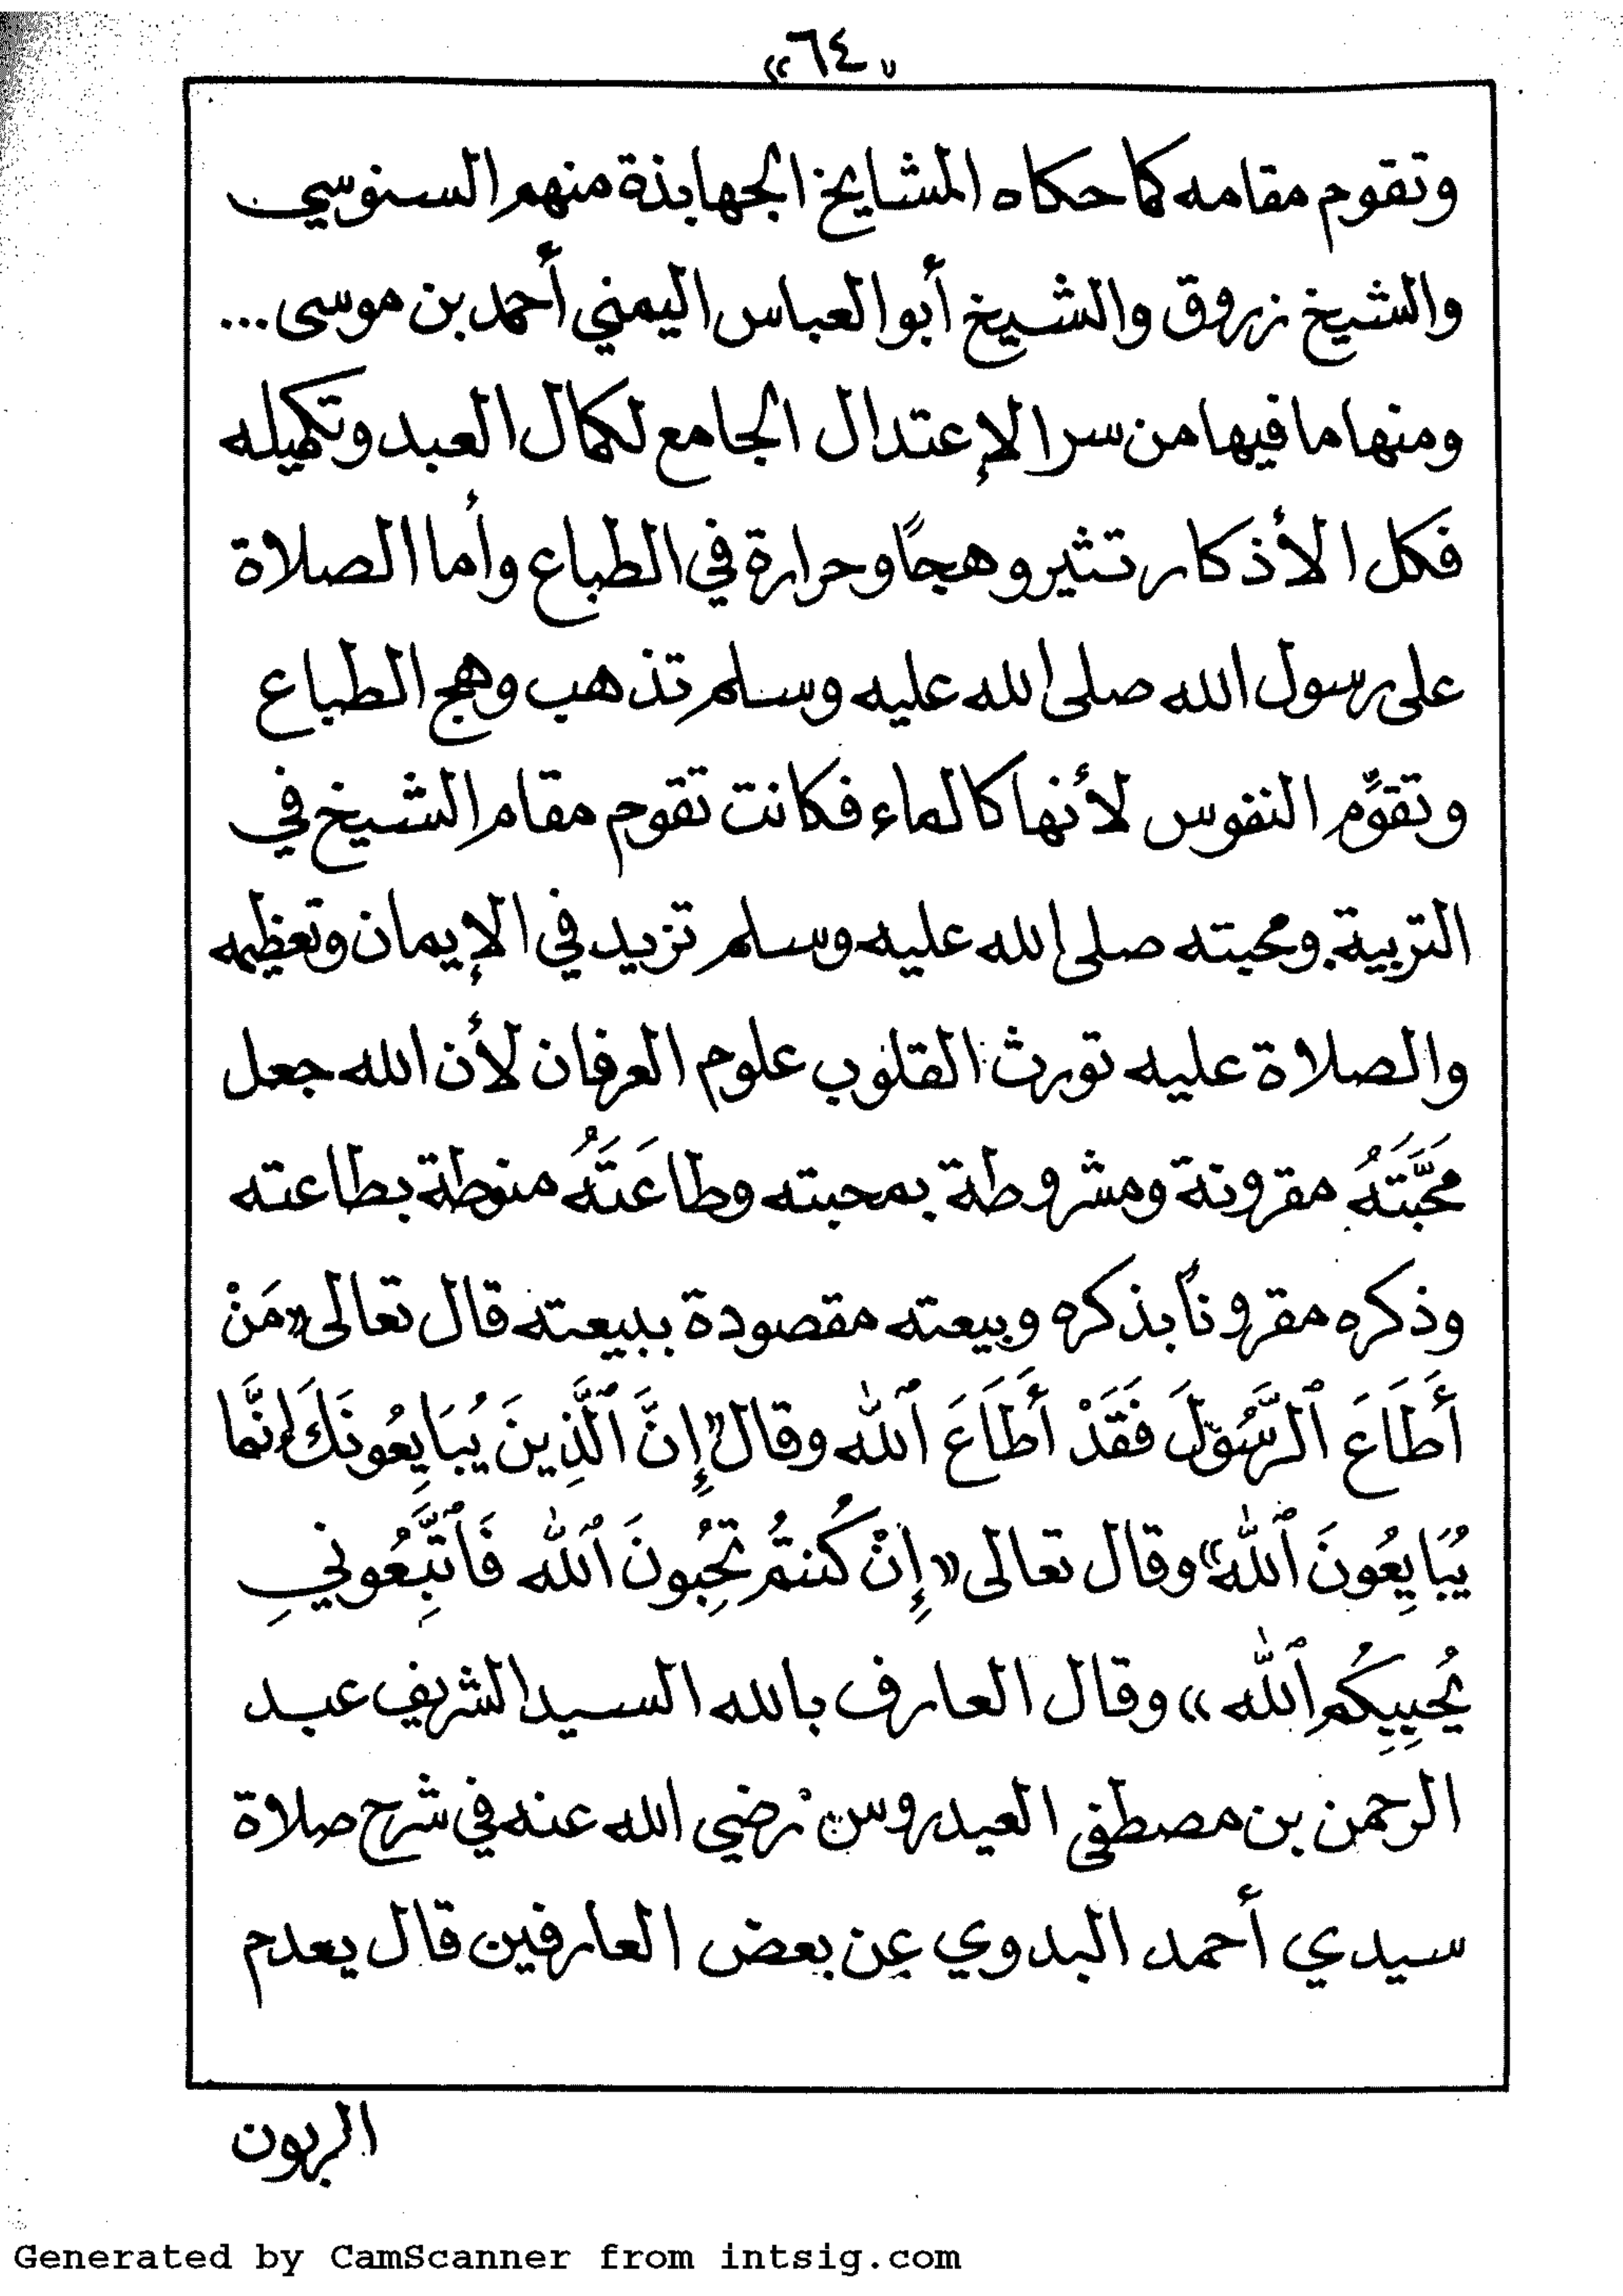 «٦٤»
وتقوم مقامه كما حكاه المشايخ الجهابذة منهم السنوسي
والشيخ زروق والشيخ أبو العباس اليمني أحمد بن موسى...
ومنها ما فيها من سر الإعتدال الجامع لكمال العبد وتكميله
فكل الأذكار تثير وهجًا وحرارة في الطباع وأما الصلاة
على رسول الله صلى الله عليه وسلم تذهب وهج الطباع
وتقوِّم النفوس لأنها كالماء فكانت تقوم مقام الشيخ في
التربية. ومحبته صلى الله عليه وسلم تزيد في الإيمان وتعظيمه
والصلاة عليه تورث القلوب علوم العرفان لأن الله جعل
مَحَبَّتَهُ مقرونة ومشروطة بمحبته وطاعَتَهُ منوطة بطاعته
وذكره مقرونًا بذكره وبيعته مقصودة ببيعته قال تعالى «مَنْ
أَطَاعَ ٱلرَّسُولَ فَقَدْ أَطَاعَ ٱلله وقال «إِنَّ ٱلَّذِينَ يُبَايِعُونَكَ إِنَّمَا
يُبَايِعُونَ ٱللهَ» وقال تعالى «إِنْ كُنتُمْ تُحِبُّونَ ٱلله فَٱتَّبِعُونِي
يُحْبِبْكُمُ ٱلله» وقال العارف بالله السيد الشريف عبد
الرحمن بن مصطفى العيدروس رضي الله عنه في شرح صلاة
سيدي أحمد البدوي عن بعض العارفين قال يعدم
الربون
Generated by CamScanner from intsig.com